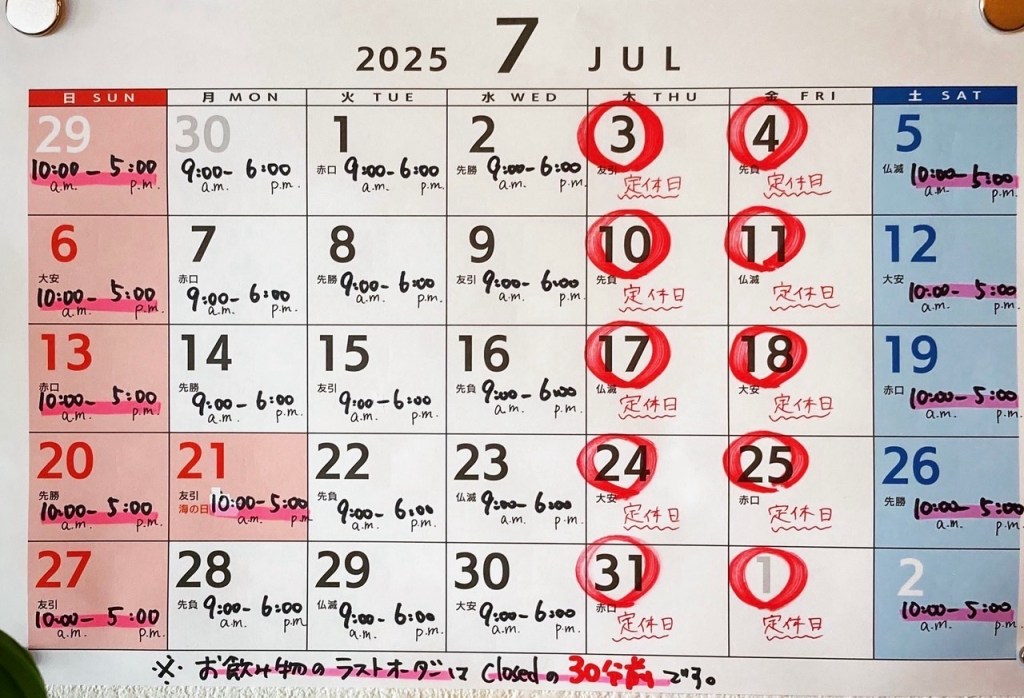 2025 7 JUL
日 SUN 月 MON 火 TUE 水 WED 木 THU 金 FRI 土 SAT
29 30 1 2 3 4 5
赤口 先勝 友引 先負 仏滅
10:00-5:00 9:00-6:00 9:00-6:00 9:00-6:00 定休日 定休日 10:00-5:00
a.m. p.m. a.m. p.m. a.m. p.m. a.m. p.m. a.m. p.m.
6 7 8 9 10 11 12
大安 赤口 先勝 友引 先負 仏滅 大安
10:00-5:00 9:00-6:00 9:00-6:00 9:00-6:00 定休日 定休日 10:00-5:00
a.m. p.m. a.m. p.m. a.m. p.m. a.m. p.m. a.m. p.m.
13 14 15 16 17 18 19
赤口 先勝 友引 先負 仏滅 大安 赤口
10:00-5:00 9:00-6:00 9:00-6:00 9:00-6:00 定休日 定休日 10:00-5:00
a.m. p.m. a.m. p.m. a.m. p.m. a.m. p.m. a.m. p.m.
20 21 22 23 24 25 26
先勝 友引 先負 仏滅 大安 赤口 先勝
海の日
10:00-5:00 10:00-5:00 9:00-6:00 9:00-6:00 定休日 定休日 10:00-5:00
a.m. p.m. a.m. p.m. a.m. p.m. a.m. p.m. a.m. p.m.
27 28 29 30 31 1 2
友引 先負 仏滅 大安 赤口
10:00-5:00 9:00-6:00 9:00-6:00 9:00-6:00 定休日 定休日 10:00-5:00
a.m. p.m. a.m. p.m. a.m. p.m. a.m. p.m. a.m. p.m.
※ お飲み物のラストオーダーは Closedの30分前です。